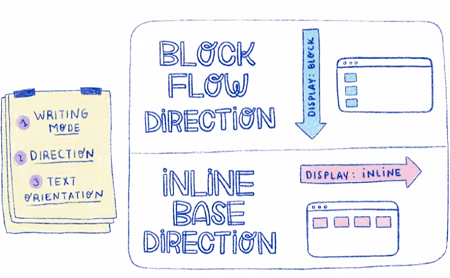 1 WRITING
MODE
2 DIRECTION
3 TEXT
ORIENTATION
BLOCK
FLOW
DIRECTION
DISPLAY: BLOCK
INLINE
BASE
DIRECTION
DISPLAY: INLINE